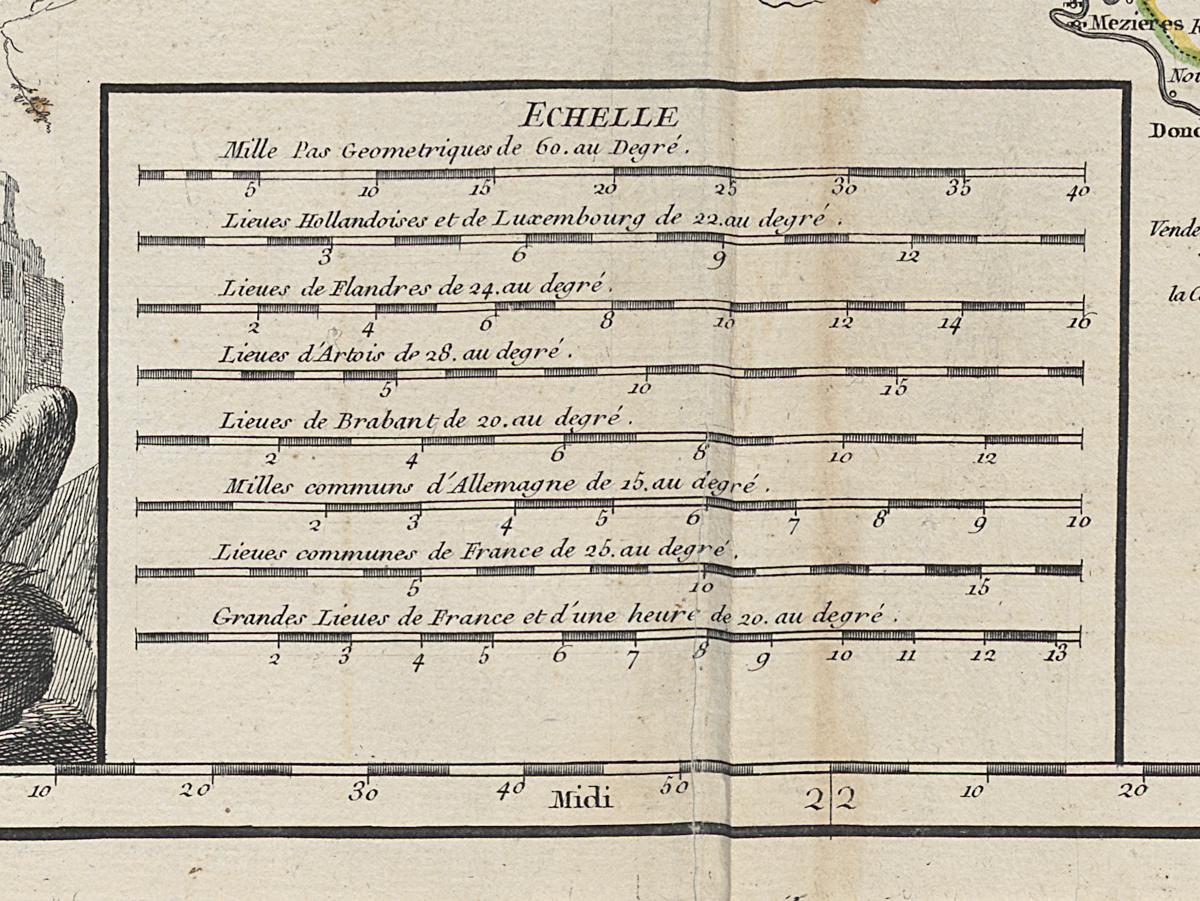 Mezieres
Dono
Vende
la C
ECHELLE
Mille Pas Geometriques de 60. au Degré.
5 10 15 20 25 30 35 40
Lieues Hollandoises et de Luxembourg de 22. au degré.
3 6 9 12
Lieues de Flandres de 24. au degré.
2 4 6 8 10 12 14 16
Lieues d'Artois de 28. au degré.
5 10 15
Lieues de Brabant de 20. au degré.
2 4 6 8 10 12
Milles communs d'Allemagne de 15. au degré.
2 3 4 5 6 7 8 9 10
Lieues communes de France de 25. au degré.
5 10 15
Grandes Lieues de France et d'une heure de 20. au degré.
2 3 4 5 6 7 8 9 10 11 12 13
10 20 30 40 50 22 10 20
Midi